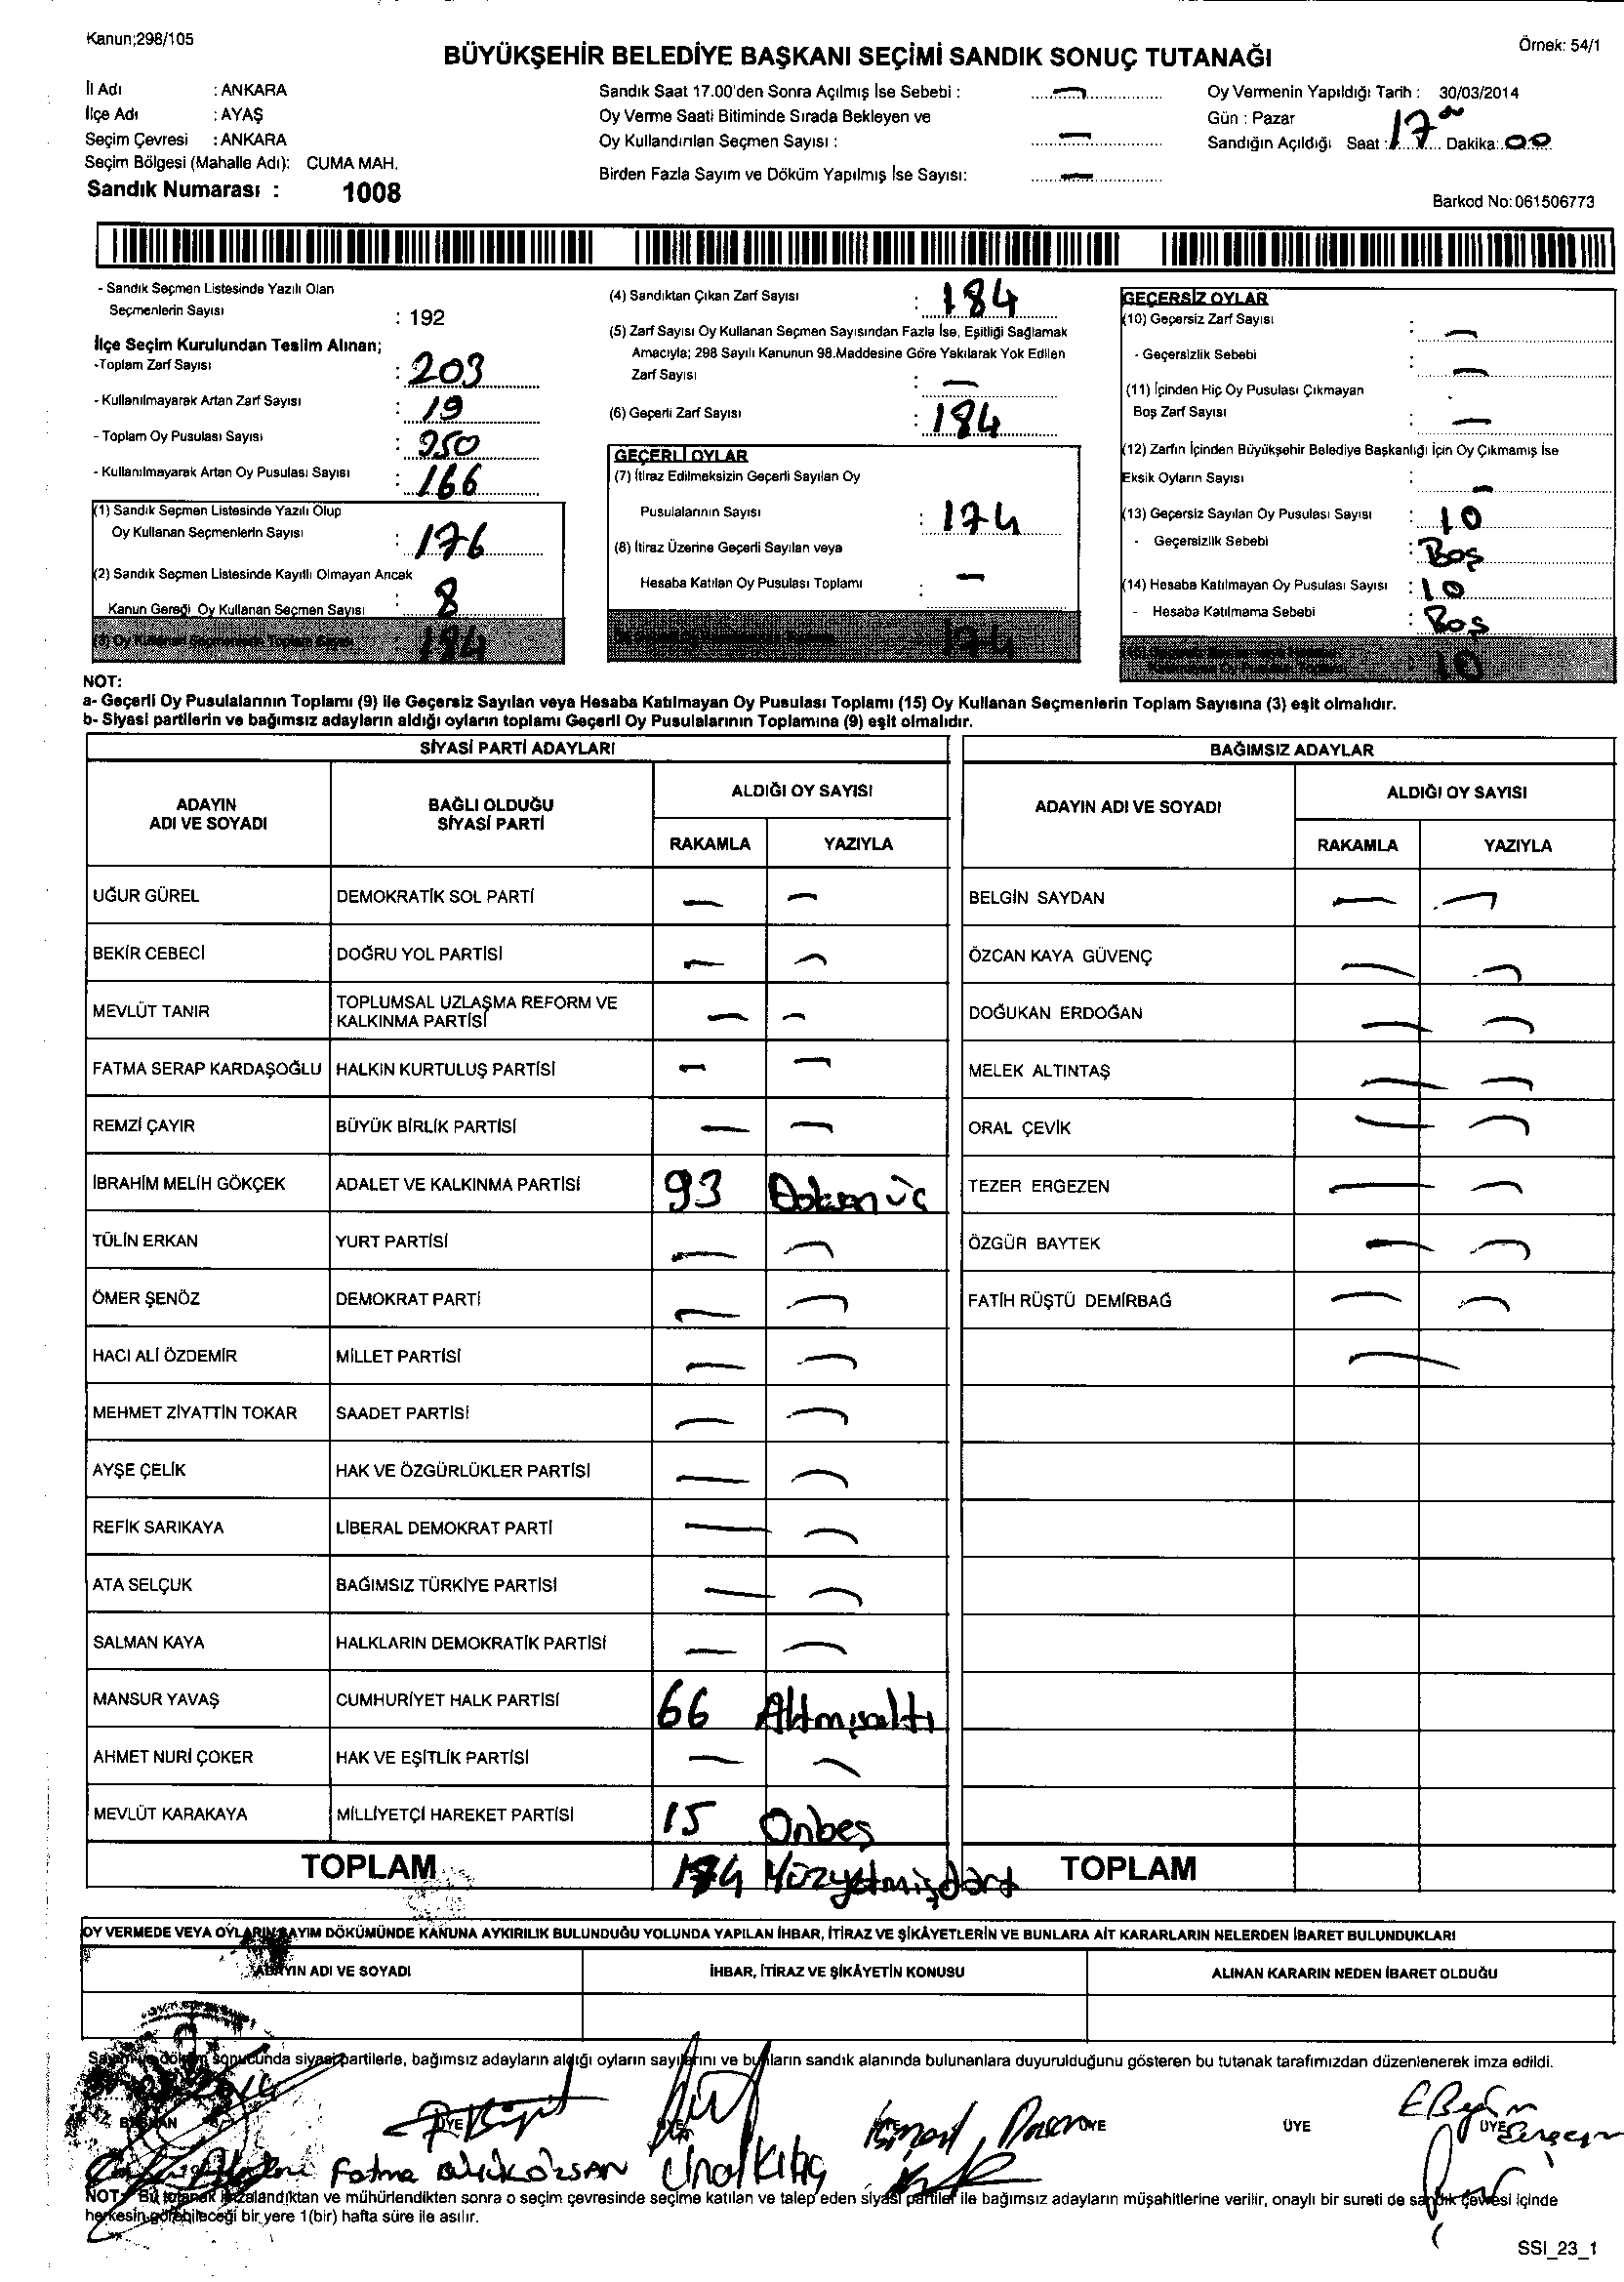 Kanun;298/105
Örnek: 54/1
BÜYÜKŞEHİR BELEDİYE BAŞKANI SEÇİMİ SANDIK SONUÇ TUTANAĞI
İl Adı : ANKARA
İlçe Adı : AYAŞ
Seçim Çevresi : ANKARA
Seçim Bölgesi (Mahalle Adı): CUMA MAH.
Sandık Numarası : 1008
Sandık Saat 17.00'den Sonra Açılmış İse Sebebi : —
Oy Verme Saati Bitiminde Sırada Bekleyen ve
Oy Kullandırılan Seçmen Sayısı : —
Birden Fazla Sayım ve Döküm Yapılmış İse Sayısı: —
Oy Vermenin Yapıldığı Tarih : 30/03/2014
Gün : Pazar
Sandığın Açıldığı Saat : 17 00 Dakika: 00
Barkod No: 061506773
- Sandık Seçmen Listesinde Yazılı Olan
Seçmenlerin Sayısı : 192
İlçe Seçim Kurulundan Teslim Alınan;
-Toplam Zarf Sayısı : 203
- Kullanılmayarak Artan Zarf Sayısı : 19
- Toplam Oy Pusulası Sayısı : 350
- Kullanılmayarak Artan Oy Pusulası Sayısı : 166
(1) Sandık Seçmen Listesinde Yazılı Olup
Oy Kullanan Seçmenlerin Sayısı : 176
(2) Sandık Seçmen Listesinde Kayıtlı Olmayan Ancak
Kanun Gereği Oy Kullanan Seçmen Sayısı : 8
(3) Oy Kullanan Seçmenlerin Toplam Sayısı : 184
(4) Sandıktan Çıkan Zarf Sayısı : 184
(5) Zarf Sayısı Oy Kullanan Seçmen Sayısından Fazla İse, Eşitliği Sağlamak
Amacıyla; 298 Sayılı Kanunun 98.Maddesine Göre Yakılarak Yok Edilen
Zarf Sayısı : —
(6) Geçerli Zarf Sayısı : 184
GEÇERLİ OYLAR
(7) İtiraz Edilmeksizin Geçerli Sayılan Oy
Pusulalarının Sayısı : 174
(8) İtiraz Üzerine Geçerli Sayılan veya
Hesaba Katılan Oy Pusulası Toplamı : —
174
GEÇERSİZ OYLAR
(10) Geçersiz Zarf Sayısı : —
- Geçersizlik Sebebi : —
(11) İçinden Hiç Oy Pusulası Çıkmayan
Boş Zarf Sayısı : —
(12) Zarfın İçinden Büyükşehir Belediye Başkanlığı İçin Oy Çıkmamış İse
Eksik Oyların Sayısı : —
(13) Geçersiz Sayılan Oy Pusulası Sayısı : 10
- Geçersizlik Sebebi : Boş
(14) Hesaba Katılmayan Oy Pusulası Sayısı : 10
- Hesaba Katılmama Sebebi : Boş
: 10
NOT:
a- Geçerli Oy Pusulalarının Toplamı (9) ile Geçersiz Sayılan veya Hesaba Katılmayan Oy Pusulası Toplamı (15) Oy Kullanan Seçmenlerin Toplam Sayısına (3) eşit olmalıdır.
b- Siyasi partilerin ve bağımsız adayların aldığı oyların toplamı Geçerli Oy Pusulalarının Toplamına (9) eşit olmalıdır.
SİYASİ PARTİ ADAYLARI
ADAYIN ADI VE SOYADI BAĞLI OLDUĞU SİYASİ PARTİ ALDIĞI OY SAYISI
RAKAMLA YAZIYLA
UĞUR GÜREL DEMOKRATİK SOL PARTİ — —
BEKİR CEBECİ DOĞRU YOL PARTİSİ — —
MEVLÜT TANIR TOPLUMSAL UZLAŞMA REFORM VE KALKINMA PARTİSİ — —
FATMA SERAP KARDAŞOĞLU HALKIN KURTULUŞ PARTİSİ — —
REMZİ ÇAYIR BÜYÜK BİRLİK PARTİSİ — —
İBRAHİM MELİH GÖKÇEK ADALET VE KALKINMA PARTİSİ 93 Doksan üç
TÜLİN ERKAN YURT PARTİSİ — —
ÖMER ŞENÖZ DEMOKRAT PARTİ — —
HACI ALİ ÖZDEMİR MİLLET PARTİSİ — —
MEHMET ZİYATTİN TOKAR SAADET PARTİSİ — —
AYŞE ÇELİK HAK VE ÖZGÜRLÜKLER PARTİSİ — —
REFİK SARIKAYA LİBERAL DEMOKRAT PARTİ — —
ATA SELÇUK BAĞIMSIZ TÜRKİYE PARTİSİ — —
SALMAN KAYA HALKLARIN DEMOKRATİK PARTİSİ — —
MANSUR YAVAŞ CUMHURİYET HALK PARTİSİ 66 Altmışaltı
AHMET NURİ ÇOKER HAK VE EŞİTLİK PARTİSİ — —
MEVLÜT KARAKAYA MİLLİYETÇİ HAREKET PARTİSİ 15 Onbeş
TOPLAM 174 Yüzyetmişdört
BAĞIMSIZ ADAYLAR
ADAYIN ADI VE SOYADI ALDIĞI OY SAYISI
RAKAMLA YAZIYLA
BELGİN SAYDAN — —
ÖZCAN KAYA GÜVENÇ — —
DOĞUKAN ERDOĞAN — —
MELEK ALTINTAŞ — —
ORAL ÇEVİK — —
TEZER ERGEZEN — —
ÖZGÜR BAYTEK — —
FATİH RÜŞTÜ DEMİRBAĞ — —
—
TOPLAM
OY VERMEDE VEYA OYLARIN SAYIM DÖKÜMÜNDE KANUNA AYKIRILIK BULUNDUĞU YOLUNDA YAPILAN İHBAR, İTİRAZ VE ŞİKÂYETLERİN VE BUNLARA AİT KARARLARIN NELERDEN İBARET BULUNDUKLARI
ADAYIN ADI VE SOYADI İHBAR, İTİRAZ VE ŞİKÂYETİN KONUSU ALINAN KARARIN NEDEN İBARET OLDUĞU
Sayım ve döküm sonucunda siyasi partilerle, bağımsız adayların aldığı oyların sayılarını ve bunların sandık alanında bulunanlara duyurulduğunu gösteren bu tutanak tarafımızdan düzenlenerek imza edildi.
BAŞKAN ÜYE ÜYE ÜYE ÜYE ÜYE
Fatma Ünal Kılıç
NOT: Bu tutanak imzalandıktan ve mühürlendikten sonra o seçim çevresinde seçime katılan ve talep eden siyasi partiler ile bağımsız adayların müşahitlerine verilir, onaylı bir sureti de sandık çevresi içinde
herkesin görebileceği bir yere 1(bir) hafta süre ile asılır.
SSI_23_1